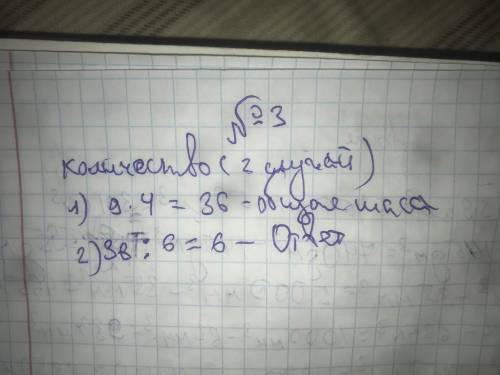 №3
количество (2 случай)
1) 9·4=36-общая масса
2) 36:6=6- Ответ